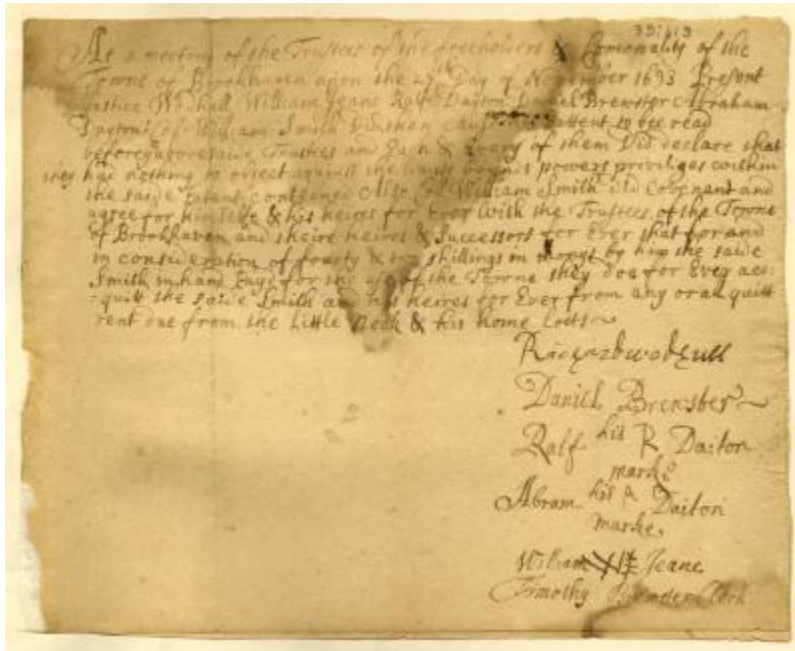 33:113
At a meeting of the Trustees of the freeholders & Comonality of the
Towne of Brookhaven upon the 27th Day of November 1693 Present
Justice Wodhull William Jeane Ralf Dayton Daniel Brewster Abraham
Dayton William Smith patent to bee read
before Trustees and Each & Every of them did declare that
they had nothing to object against the powers priviliges within
the saide patent contained Also William Smith did Covenant and
agree for himselfe & his heires for Ever with the Trustees of the Towne
of Brookhaven and theire heires & Successors for Ever that for and
in consideration of fourty & shillings in monys by him the saide
Smith in hand payd for the use of the Towne they doe for Ever ac:
:quitt the saide Smith and his heires for Ever from any or all quitt
rent due from the Little Neck & his home Lotts
Richard Wodhull
Daniell Brewster
Ralf his R Daiton
marke
Abram his A Daiton
marke
William Jeane
Timothy Brewster Clerk